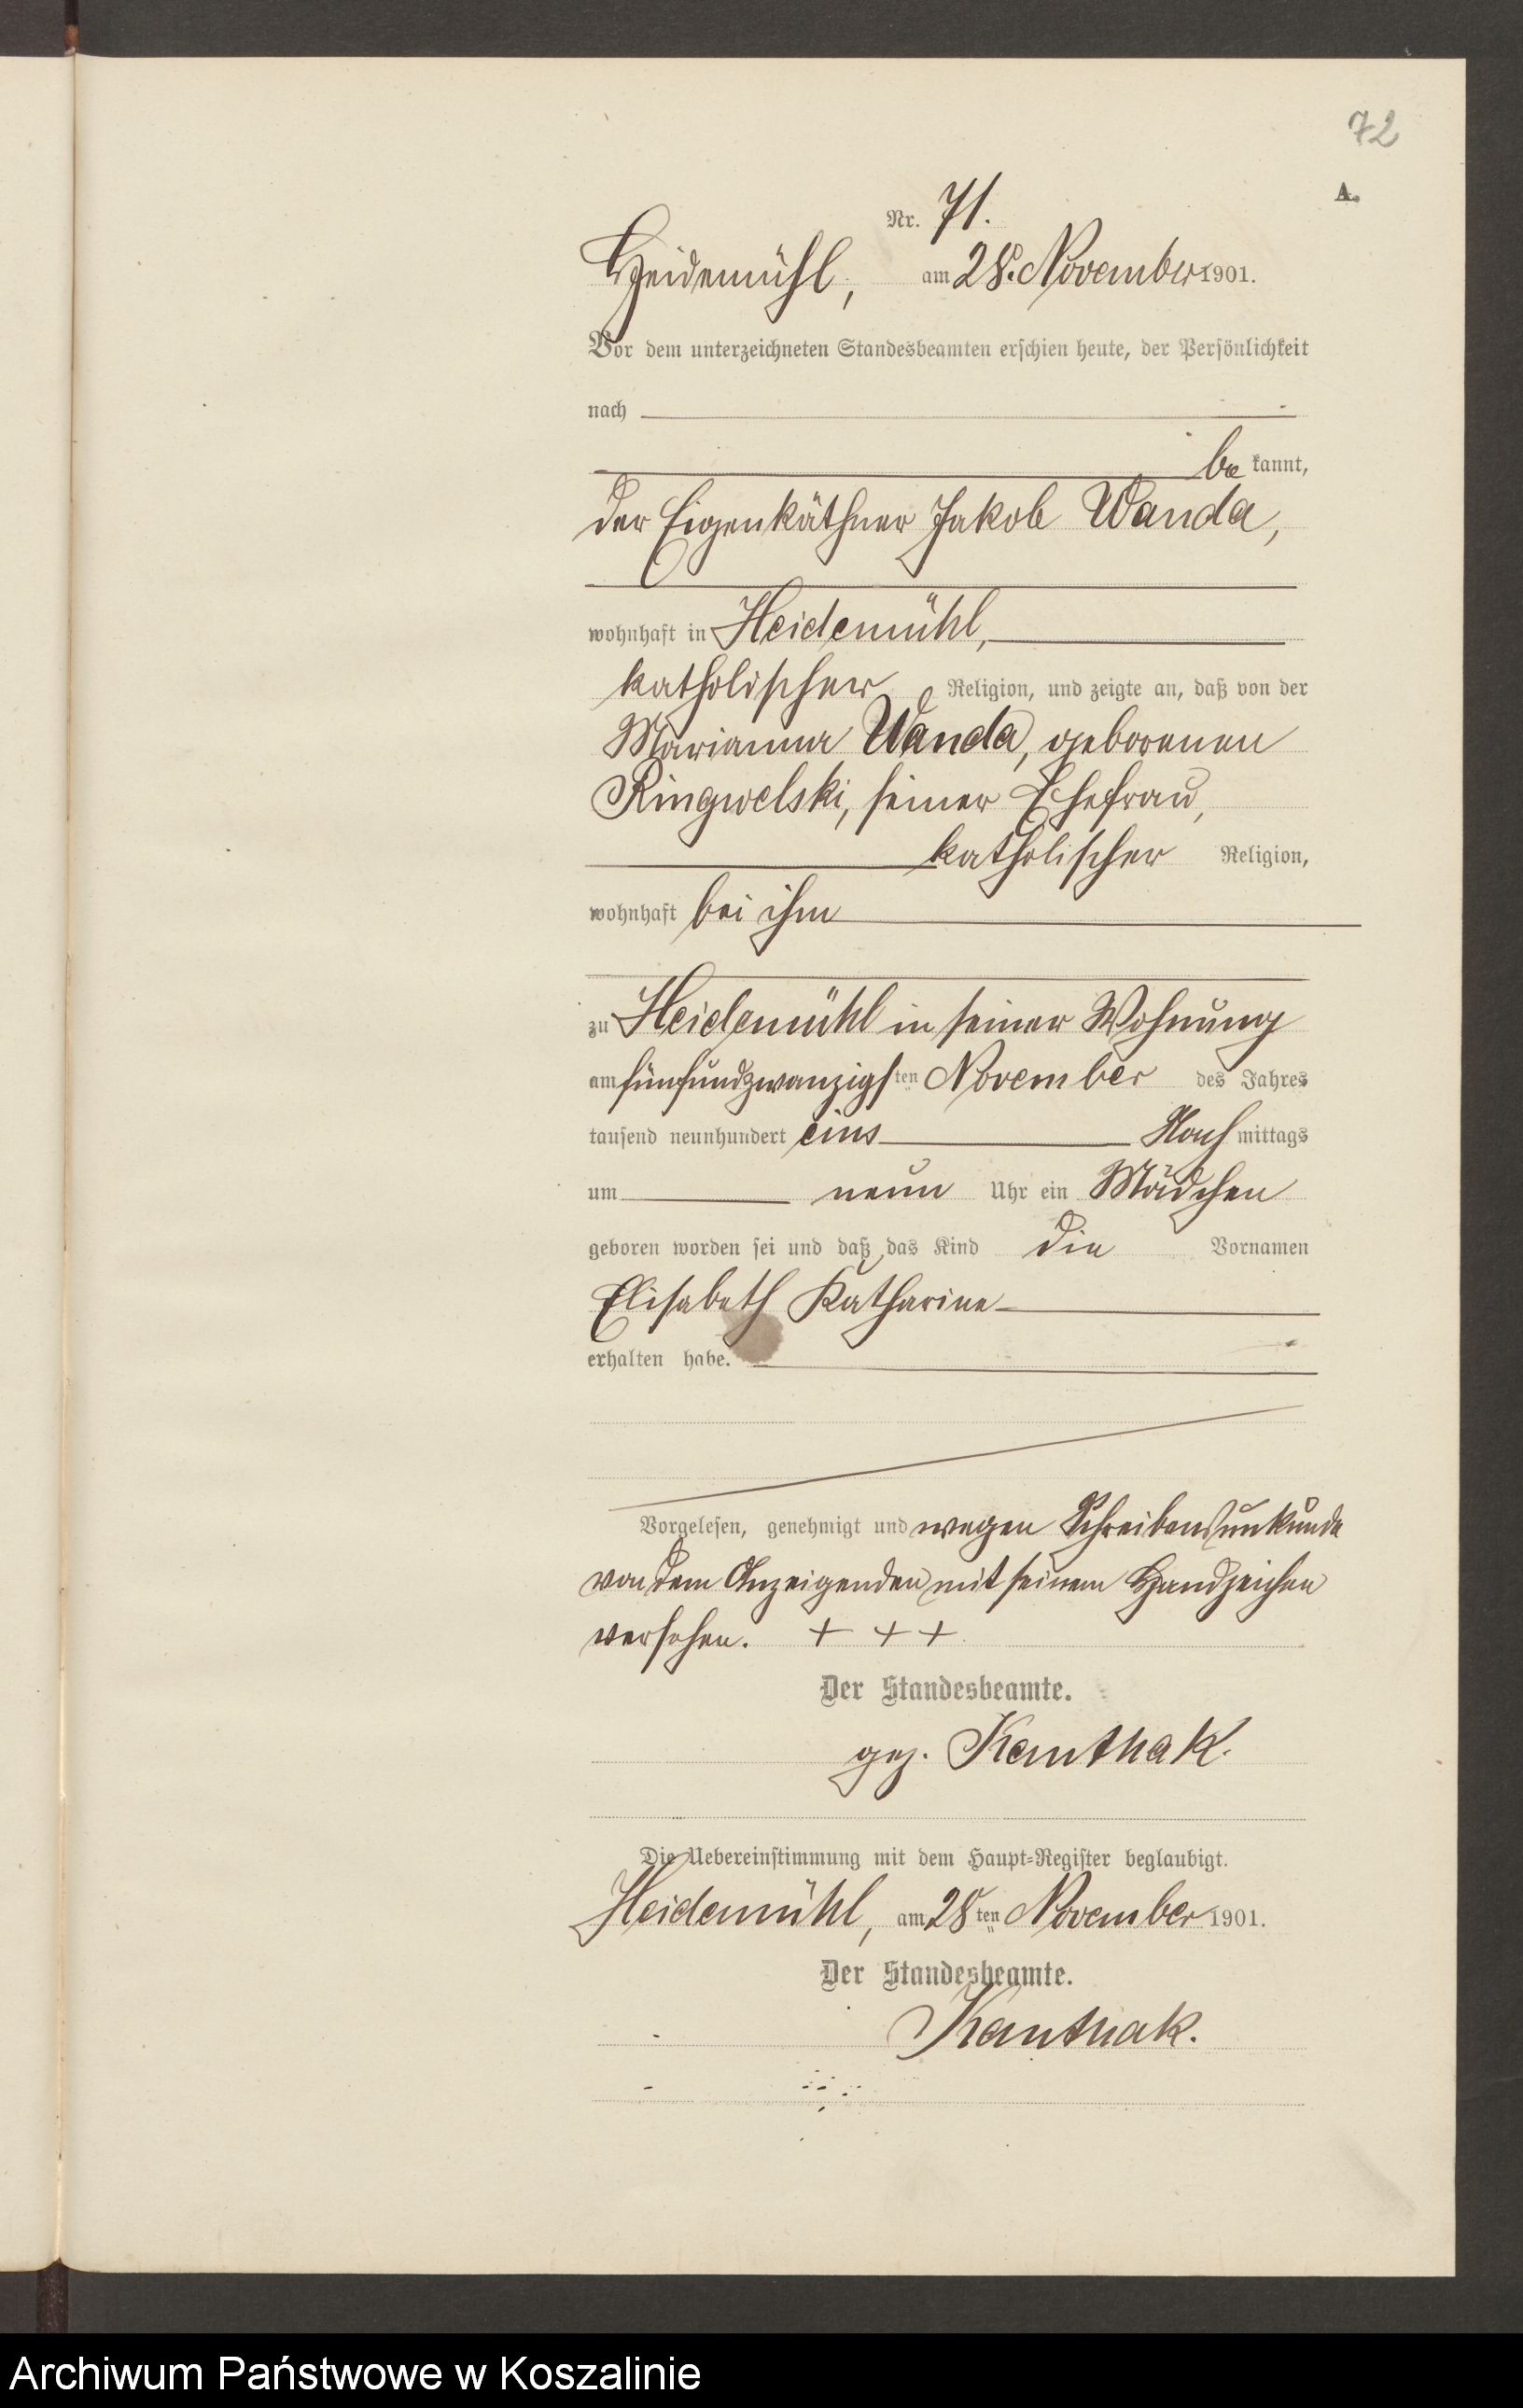 72
A.
Nr. 71.
Heidemühl, am 28. November 1901.
Vor dem unterzeichneten Standesbeamten erschien heute, der Persönlichkeit
nach
be kannt,
der Eigenkäthner Jakob Wanda,
wohnhaft in Heidemühl,
katholischer Religion, und zeigte an, daß von der
Marianna Wanda, geborenen
Ringwelski, seiner Ehefrau,
katholischer Religion,
wohnhaft bei ihm
zu Heidemühl in seiner Wohnung
am fünfundzwanzigsten November des Jahres
tausend neunhundert eins Nach mittags
um neun Uhr ein Mädchen
geboren worden sei und daß das Kind die Vornamen
Elisabeth Katharine
erhalten habe.
Vorgelesen, genehmigt und wegen Schreibensunkunde
von dem Anzeigenden mit seinem Handzeichen
versehen. + + +
Der Standesbeamte.
gez. Kanthak.
Die Uebereinstimmung mit dem Haupt-Register beglaubigt.
Heidemühl, am 28ten November 1901.
Der Standesbeamte.
Kanthak.
Archiwum Państwowe w Koszalinie